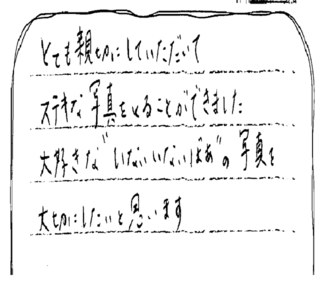 とても親切にしていただいて
ステキな写真をとることができました
大好きな"いないいないばあ"の写真を
大切にしたいと思います